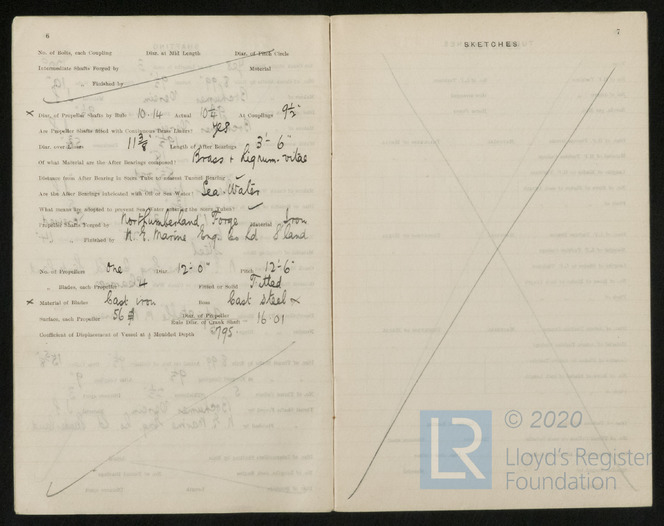 6
No. of Bolts, each Coupling Diar. at Mid Length Diar. of Pitch Circle
Intermediate Shafts Forged by Material
Finished by
x Diar. of Propeller Shafts by Rule 10.14 Actual 10¼ At Couplings 9½"
Are Propeller Shafts fitted with Continuous Brass Liners? Yes
Diar. over Liners 11⅜ Length of After Bearings 3'- 6"
Of what Material are the After Bearings composed? Brass + Lignum-vitae
Distance from After Bearing in Stern Tube to nearest Tunnel Bearing
Are the After Bearings lubricated with Oil or Sea Water? Sea Water
What means are adopted to prevent Sea Water entering the Stern Tubes?
Propeller Shafts Forged by Northumberland Forge Material Iron
Finished by N. E. Marine Eng. Co Ld S'land
No. of Propellers One Diar. 12'- 0" Pitch 12'- 6"
" Blades, each Propeller 4 Fitted or Solid Fitted
x Material of Blades Cast iron Boss Cast Steel x
Surface, each Propeller 56 Diar. of Propeller
Rule Diar. of Crank Shaft 16.01
Coefficient of Displacement of Vessel at ¾ Moulded Depth .795
7
SKETCHES
LR
© 2020
Lloyd's Register
Foundation